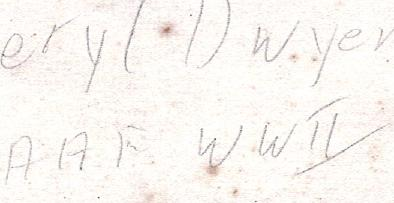 ery ( Dwyer
AAF WWII